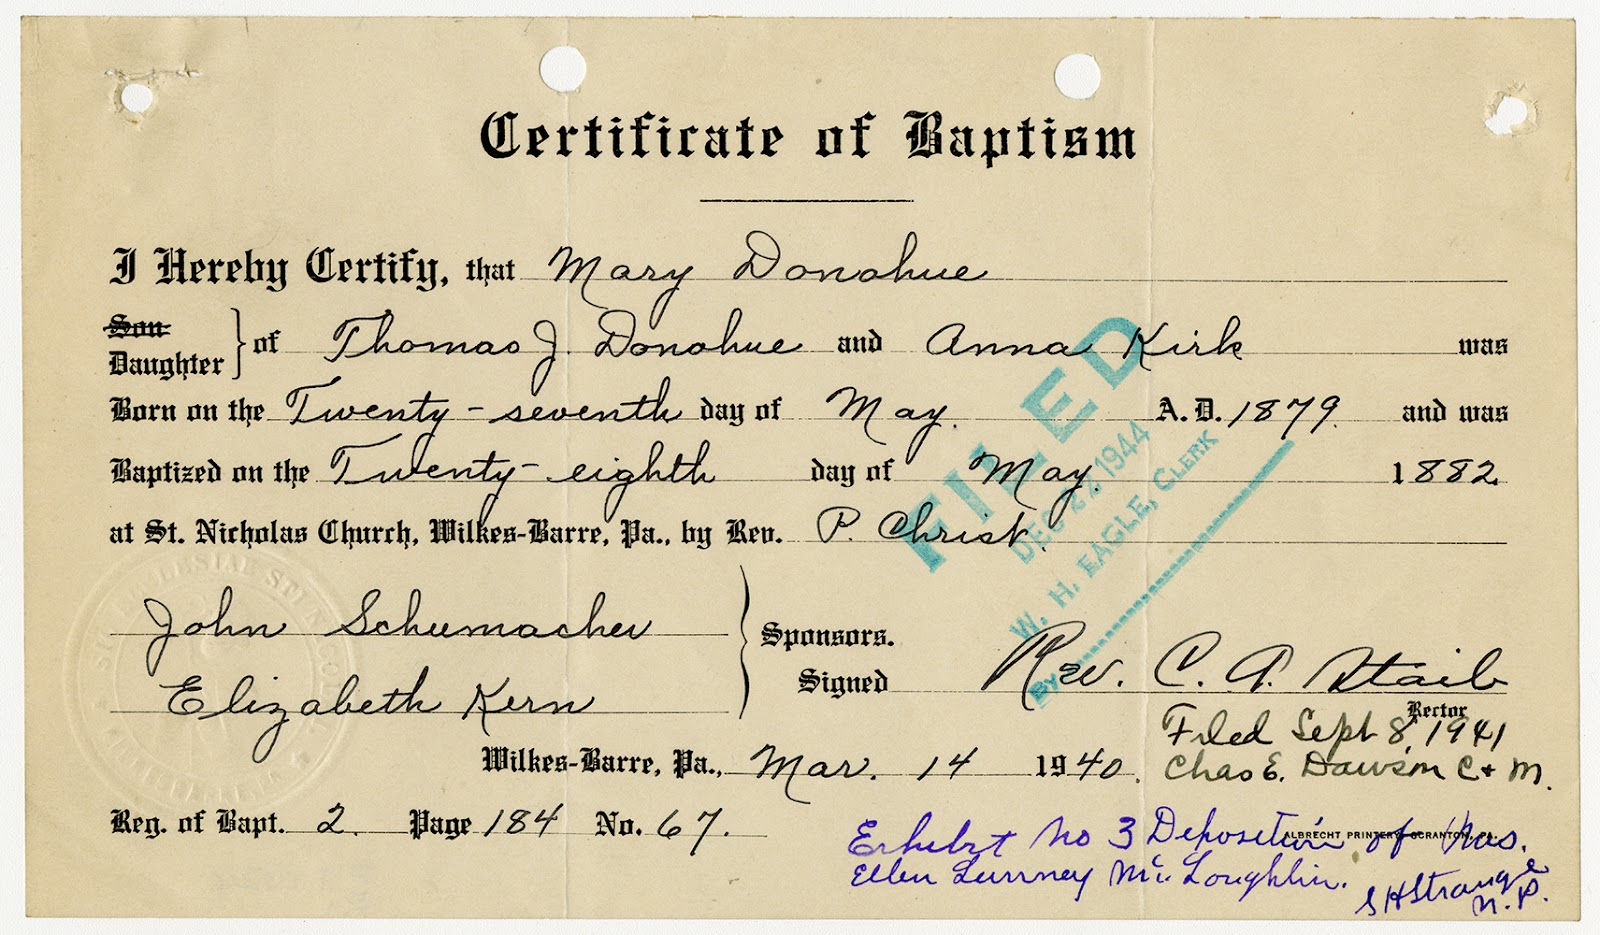 Certificate of Baptism
I Hereby Certify, that Mary Donohue
Son
Daughter } of Thomas J. Donohue and Anna Kirk was
Born on the Twenty-seventh day of May. A.D. 1879. and was
Baptized on the Twenty-eighth day of May. 1882.
at St. Nicholas Church, Wilkes-Barre, Pa., by Rev. P. Christ.
FILED
DEC 22 1944
W. H. EAGLE, CLERK
BY
John Schumacher
Elizabeth Kern
Sponsors.
Signed Rev. C. A. Staib
Rector
Filed Sept 8, 1941
Wilkes-Barre, Pa., Mar. 14 1940.
Chas E. Dawson C & M.
Reg. of Bapt. 2. Page 184 No. 67.
ALBRECHT PRINTERY SCRANTON, PA.
Exhibit No 3 Deposition of Mrs.
Ellen Lurney McLoughlin.
S H Strange
N. P.